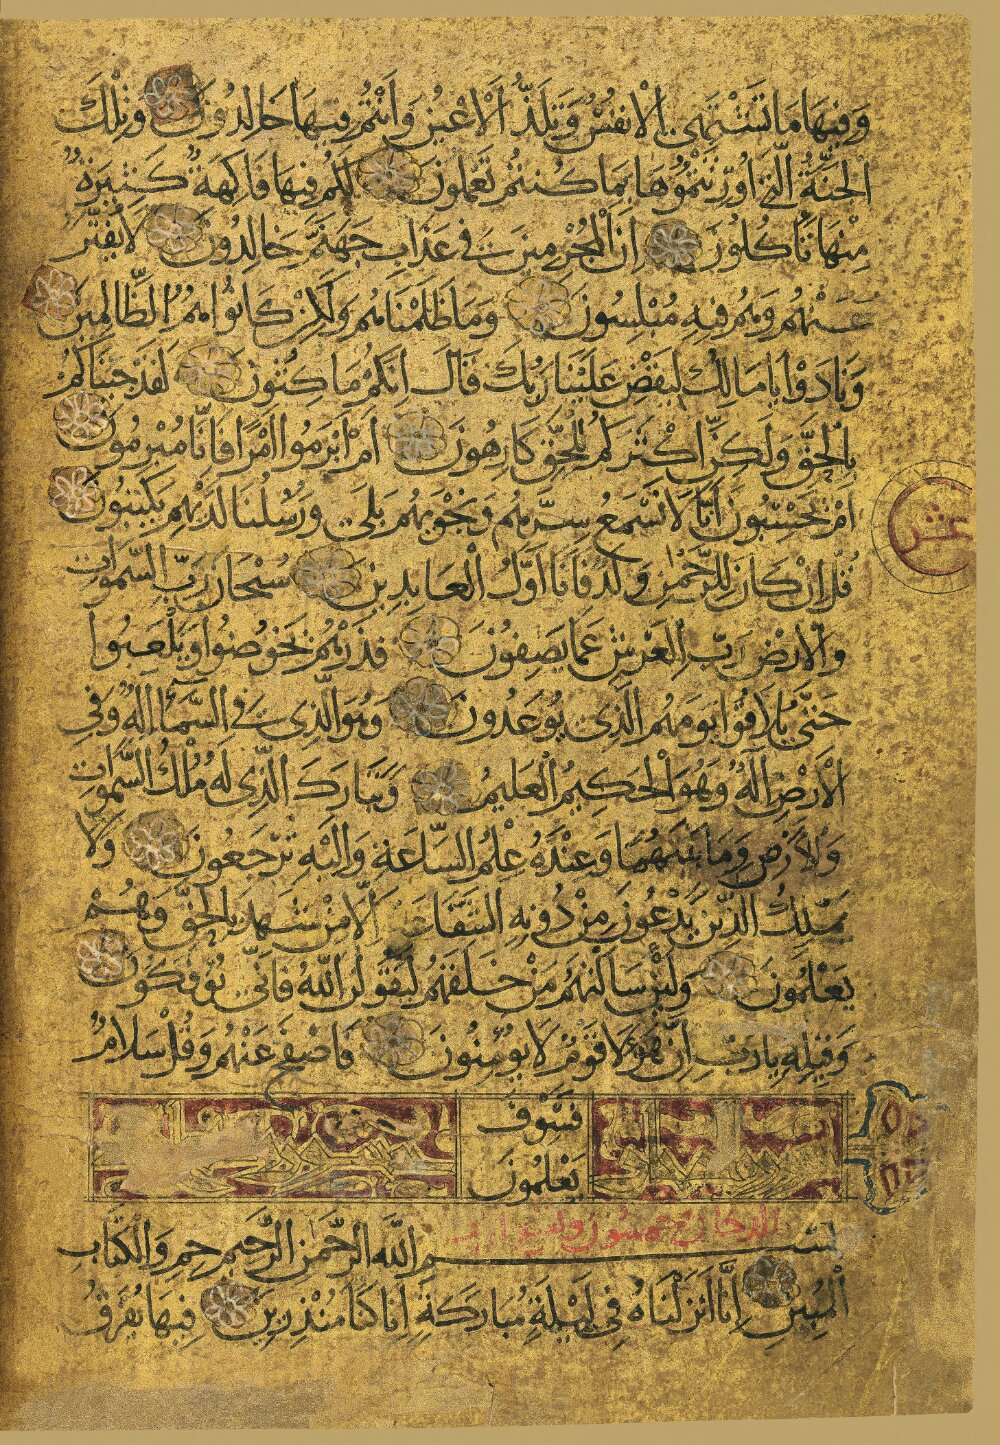 وَفِيهَا مَا تَشْتَهِي الْأَنفُسُ وَتَلَذُّ الْأَعْيُنُ وَأَنْتُمْ فِيهَا خَالِدُونَ وَتِلْكَ
الْجَنَّةُ الَّتِي أُورِثْتُمُوهَا بِمَا كُنْتُمْ تَعْمَلُونَ لَكُمْ فِيهَا فَاكِهَةٌ كَثِيرَةٌ
مِنْهَا تَأْكُلُونَ إِنَّ الْمُجْرِمِينَ فِي عَذَابِ جَهَنَّمَ خَالِدُونَ لَا يُفَتَّرُ
عَنْهُمْ وَهُمْ فِيهِ مُبْلِسُونَ وَمَا ظَلَمْنَاهُمْ وَلَكِنْ كَانُوا هُمُ الظَّالِمِينَ
وَنَادَوْا يَا مَالِكُ لِيَقْضِ عَلَيْنَا رَبُّكَ قَالَ إِنَّكُمْ مَاكِثُونَ لَقَدْ جِئْنَاكُمْ
بِالْحَقِّ وَلَكِنَّ أَكْثَرَكُمْ لِلْحَقِّ كَارِهُونَ أَمْ أَبْرَمُوا أَمْرًا فَإِنَّا مُبْرِمُونَ
أَمْ يَحْسَبُونَ أَنَّا لَا نَسْمَعُ سِرَّهُمْ وَنَجْوَيهُمْ بَلَى وَرُسُلُنَا لَدَيْهِمْ يَكْتُبُونَ
قُلْ إِنْ كَانَ لِلرَّحْمَنِ وَلَدٌ فَأَنَا أَوَّلُ الْعَابِدِينَ سُبْحَانَ رَبِّ السَّمَوَاتِ
وَالْأَرْضِ رَبِّ الْعَرْشِ عَمَّا يَصِفُونَ فَذَرْهُمْ يَخُوضُوا وَيَلْعَبُوا
حَتَّى يُلَاقُوا يَوْمَهُمُ الَّذِي يُوعَدُونَ وَهُوَ الَّذِي فِي السَّمَاءِ إِلَهٌ وَفِي
الْأَرْضِ إِلَهٌ وَهُوَ الْحَكِيمُ الْعَلِيمُ وَتَبَارَكَ الَّذِي لَهُ مُلْكُ السَّمَوَاتِ
وَالْأَرْضِ وَمَا بَيْنَهُمَا وَعِنْدَهُ عِلْمُ السَّاعَةِ وَإِلَيْهِ تُرْجَعُونَ وَلَا
يَمْلِكُ الَّذِينَ يَدْعُونَ مِنْ دُونِهِ الشَّفَاعَةَ إِلَّا مَنْ شَهِدَ بِالْحَقِّ وَهُمْ
يَعْلَمُونَ وَلَئِنْ سَأَلْتَهُمْ مَنْ خَلَقَهُمْ لَيَقُولُنَّ اللَّهُ فَأَنَّى يُؤْفَكُونَ
وَقِيلِهِ يَا رَبِّ إِنَّ هَؤُلَاءِ قَوْمٌ لَا يُؤْمِنُونَ فَاصْفَحْ عَنْهُمْ وَقُلْ سَلَامٌ
فَسَوْفَ
يَعْلَمُونَ
بِسْمِ اللَّهِ الرَّحْمَنِ الرَّحِيمِ حم وَالْكِتَابِ
الْمُبِينِ إِنَّا أَنْزَلْنَاهُ فِي لَيْلَةٍ مُبَارَكَةٍ إِنَّا كُنَّا مُنْذِرِينَ فِيهَا يُفْرَقُ
عشر